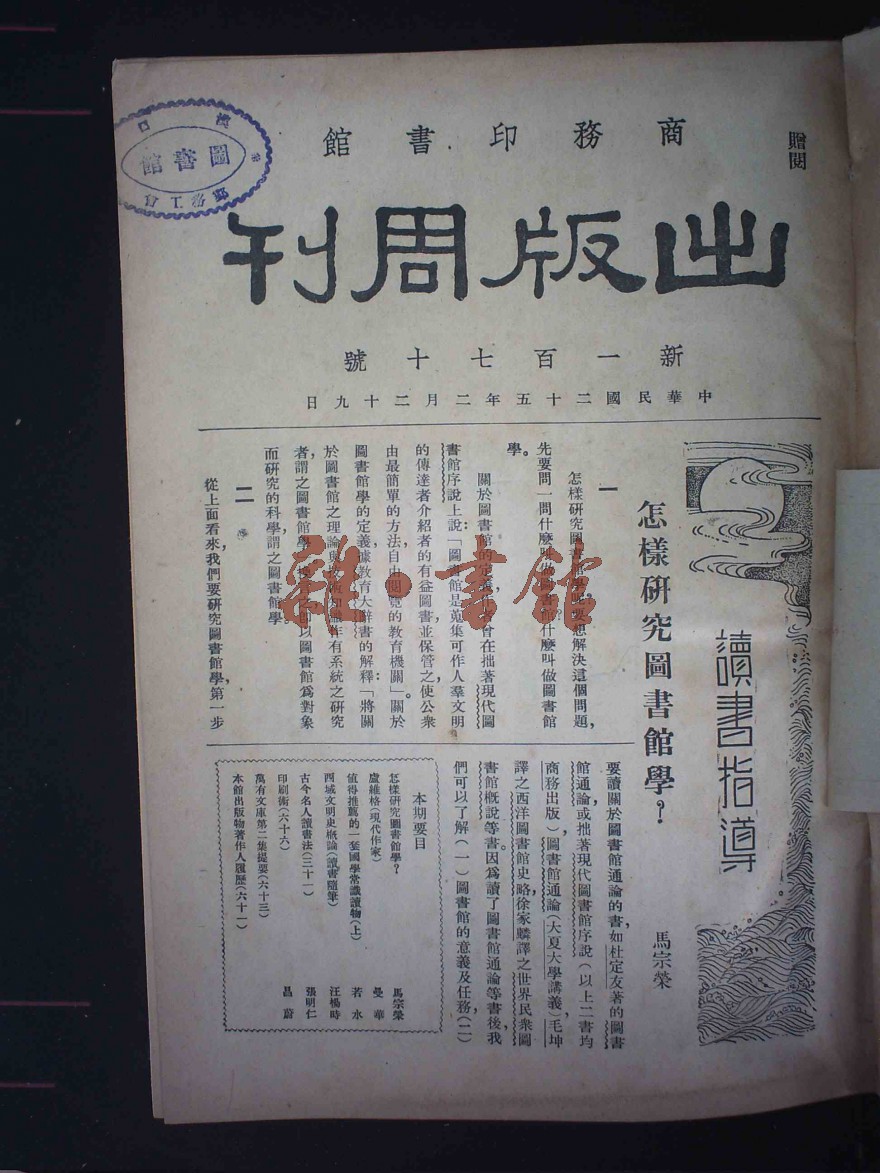 贈閱
商務印書館
出版周刊
新一百七十號
中華民國二十五年二月二十九日
漢口
圖書館
工會
讀書指導
怎樣研究圖書館學？
馬宗榮
一
怎樣研究圖書館學呢要想解決這個問題，
先要問一問什麼叫做圖書館什麼叫做圖書館
學。
關於圖書館的定義作者會在拙著現代圖
書館序說上說：「圖書館是蒐集可作人羣文明
的傳達者介紹者的有益圖書，並保管之，使公衆
由最簡單的方法，自由閱覽的教育機關」。關於
圖書館學的定義據教育大辭書的解釋：「將關
於圖書館之理論與技術知識作有系統之研究
者，謂之圖書館學。換言之，即以圖書館爲對象
而研究的科學，謂之圖書館學。
二
從上面看來，我們要研究圖書館學，第一步
要讀關於圖書館通論的書，如杜定友著的圖書
館通論，或拙著現代圖書館序說（以上二書均
商務出版）圖書館通論（大夏大學講義）毛坤
譯之西洋圖書館史略，徐家麟譯之世界民衆圖
書館槪說等書。因爲讀了圖書館通論等書後，我
們可以了解（一）圖書館的意義及任務（二）
本期要目
怎樣研究圖書館學？ 馬宗榮
盧維格（現代作家） 曼華
值得推薦的一套國學常識讀物（上） 若水
西域文明史概論（讀書隨筆） 汪楊時
古今名人讀書法（三十一） 張明仁
印刷術（六十六） 昌蔚
萬有文庫第二集提要（六十三）
本館出版物著作人履歷（六十一）
雜·書館